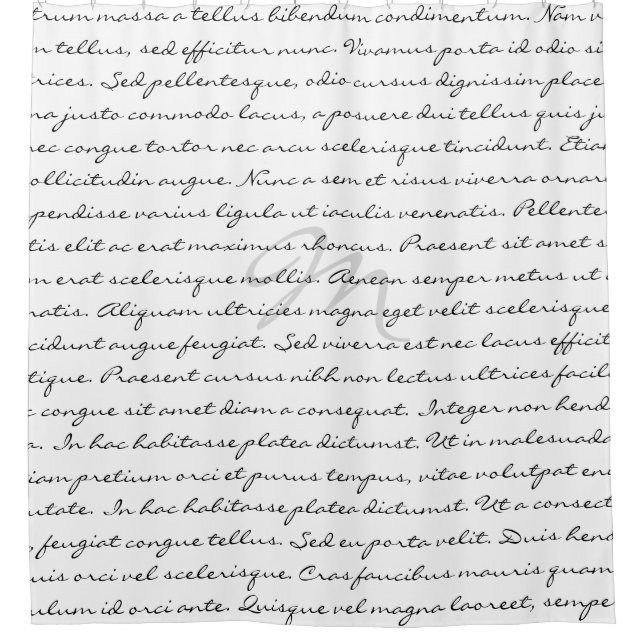 trum massa a tellus bibendum condimentum. Nam v
m tellus, sed efficitur nunc. Vivamus porta id odio si
trices. Sed pellentesque, odio cursus dignissim place
na justo commodo lacus, a posuere dui tellus quis ju
nec congue tortor nec arcu scelerisque tincidunt. Etiam
ollicitudin augue. Nunc a sem et risus viverra ornare
pendisse varius ligula ut iaculis venenatis. Pellente
tis elit ac erat maximus rhoncus. Praesent sit amet s
M
m erat scelerisque mollis. Aenean semper metus ut u
natis. Aliquam ultricies magna eget velit scelerisque
cidunt augue feugiat. Sed viverra est nec lacus efficit
tique. Praesent cursus nibh non lectus ultrices facili
c congue sit amet diam a consequat. Integer non hend
a. In hac habitasse platea dictumst. Ut in malesuada
iam pretium orci et purus tempus, vitae volutpat eni
utate. In hac habitasse platea dictumst. Ut a consect
, feugiat congue tellus. Sed eu porta velit. Duis hend
uis orci vel scelerisque. Cras faucibus mauris quam
ulum id orci ante. Quisque vel magna laoreet, sempe